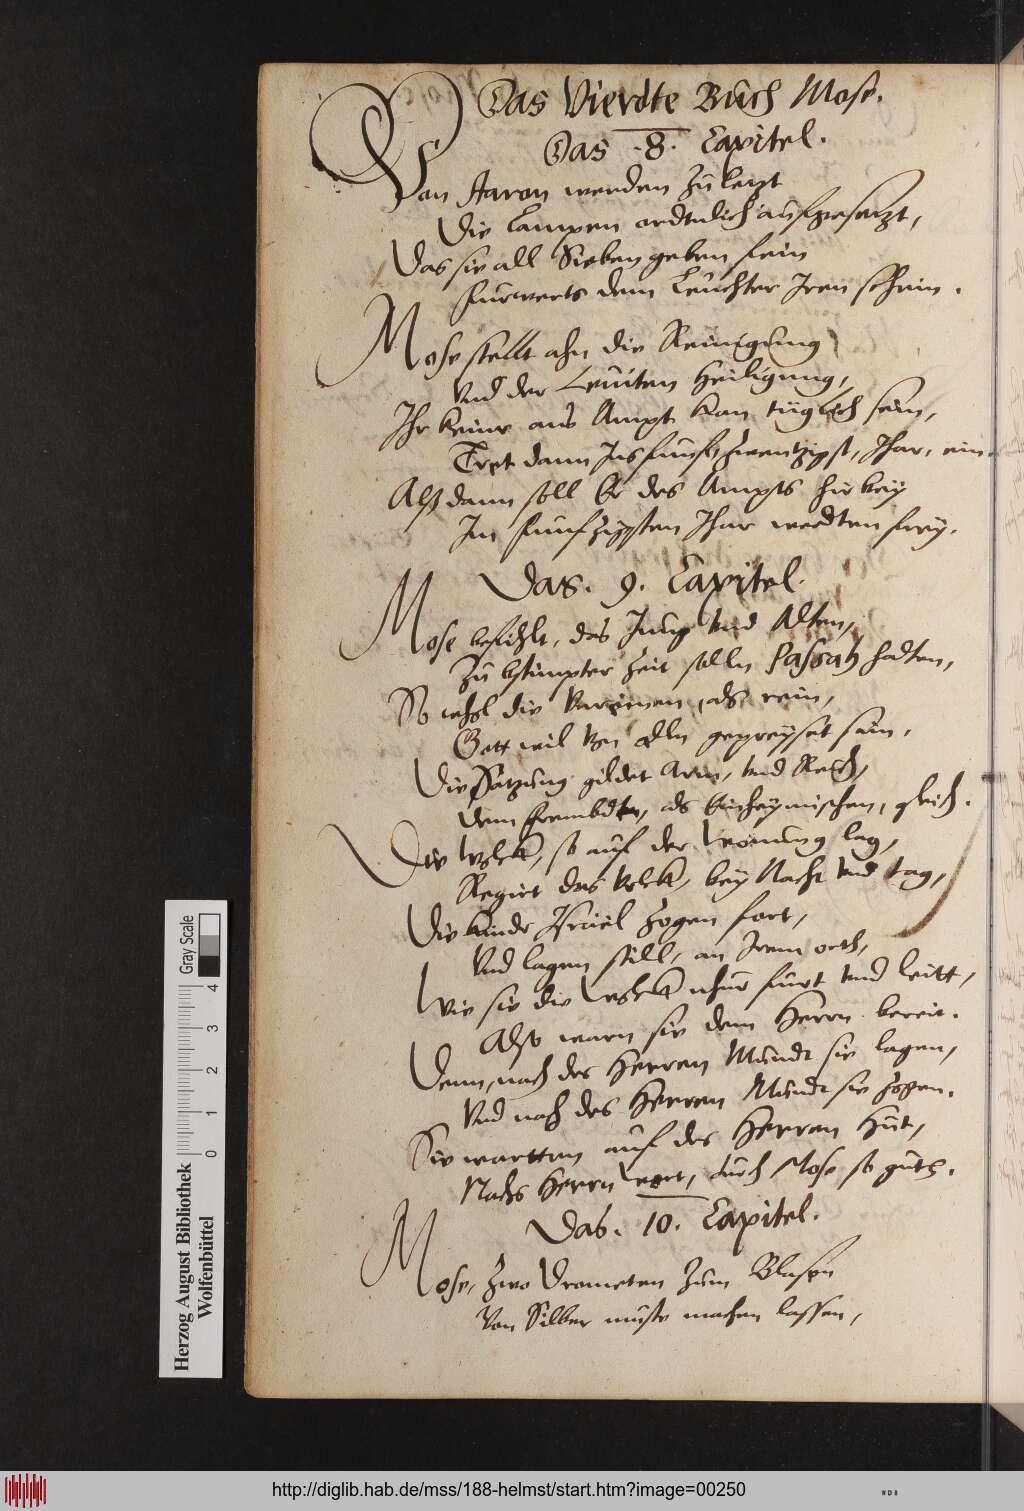 Das Vierdte Buch Mose.
Das .8. Capitel.
Von Aaron werden zu letzt
Die Lampen ordtnlich aufgesatzt,
Das sie all Sieben geben fein
Furwerts dem Leuchter Iren schein.
Mose stellt ahn die Reinigung
Und der Leuiten Heiligung,
Ihr keiner ans Ampt kan tüglich sein,
Tret dann Ins funf zwentzigst, Jhar, ein
Alß dann soll Er des Ampts hie bey
Im funfzigsten Jhar werdten frey.
Das. 9. Capitel.
Mose befihlt, das Jung und Alten,
Zu bstimpter Zeit solln Passah halten,
So wohl die Unreinen, als rein,
Gott wil von alln gepreyset sein,
Die Satzung gildet Arm, und Reich,
dem frembdten, als Einheymischen, gleich.
Die Wolck, so auf der Wonung lag,
Regirt das Volck, bey Nacht und tag,
Die kinder Israel zogen fort,
Und lagen still, an Irem orth,
Wie sie die Wolck nhur furt und leitt,
Also warn sie dem Herrn bereit.
Denn, nach des Herren Mundt sie lagen,
Und nach des Herren Mundt sie zogen.
Sie wartten auf des Herren Hut,
Nachs Herrn Wort, durch Mose so guth.
Das. 10. Capitel.
Mose, zwo Drometen zum Blasen
Von Silber muste machen lassen,
Herzog August Bibliothek
Wolfenbüttel
Gray Scale
0 1 2 3 4
http://diglib.hab.de/mss/188-helmst/start.htm?image=00250
WDB